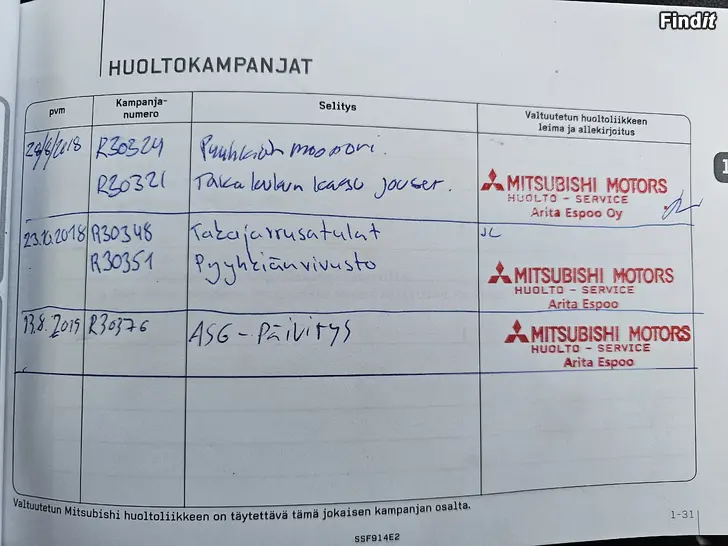 Findit
HUOLTOKAMPANJAT
pvm
Kampanja-
numero
Selitys
Valtuutetun huoltoliikkeen
leima ja allekirjoitus
29/8/2018 R30324 Pyyhkiän moottori.
R30321 Takaluukun kaasu jouset.
MITSUBISHI MOTORS
HUOLTO - SERVICE
Arita Espoo Oy
23.10.2018 R30348 Takajarrusatulat JL
R30351 Pyyhkiänvivusto
MITSUBISHI MOTORS
HUOLTO - SERVICE
Arita Espoo
13.8.2019 R30376 ASG-Päivitys
MITSUBISHI MOTORS
HUOLTO - SERVICE
Arita Espoo
Valtuutetun Mitsubishi huoltoliikkeen on täytettävä tämä jokaisen kampanjan osalta.
1-31
SSF914E2